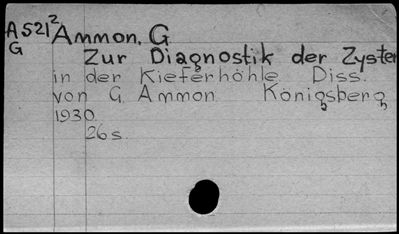 A521² Ammon, G
G Zur Diagnostik der Zysten
in der Kieferhöhle. Diss.
von G. Ammon Königsberg
1930.
26 s.